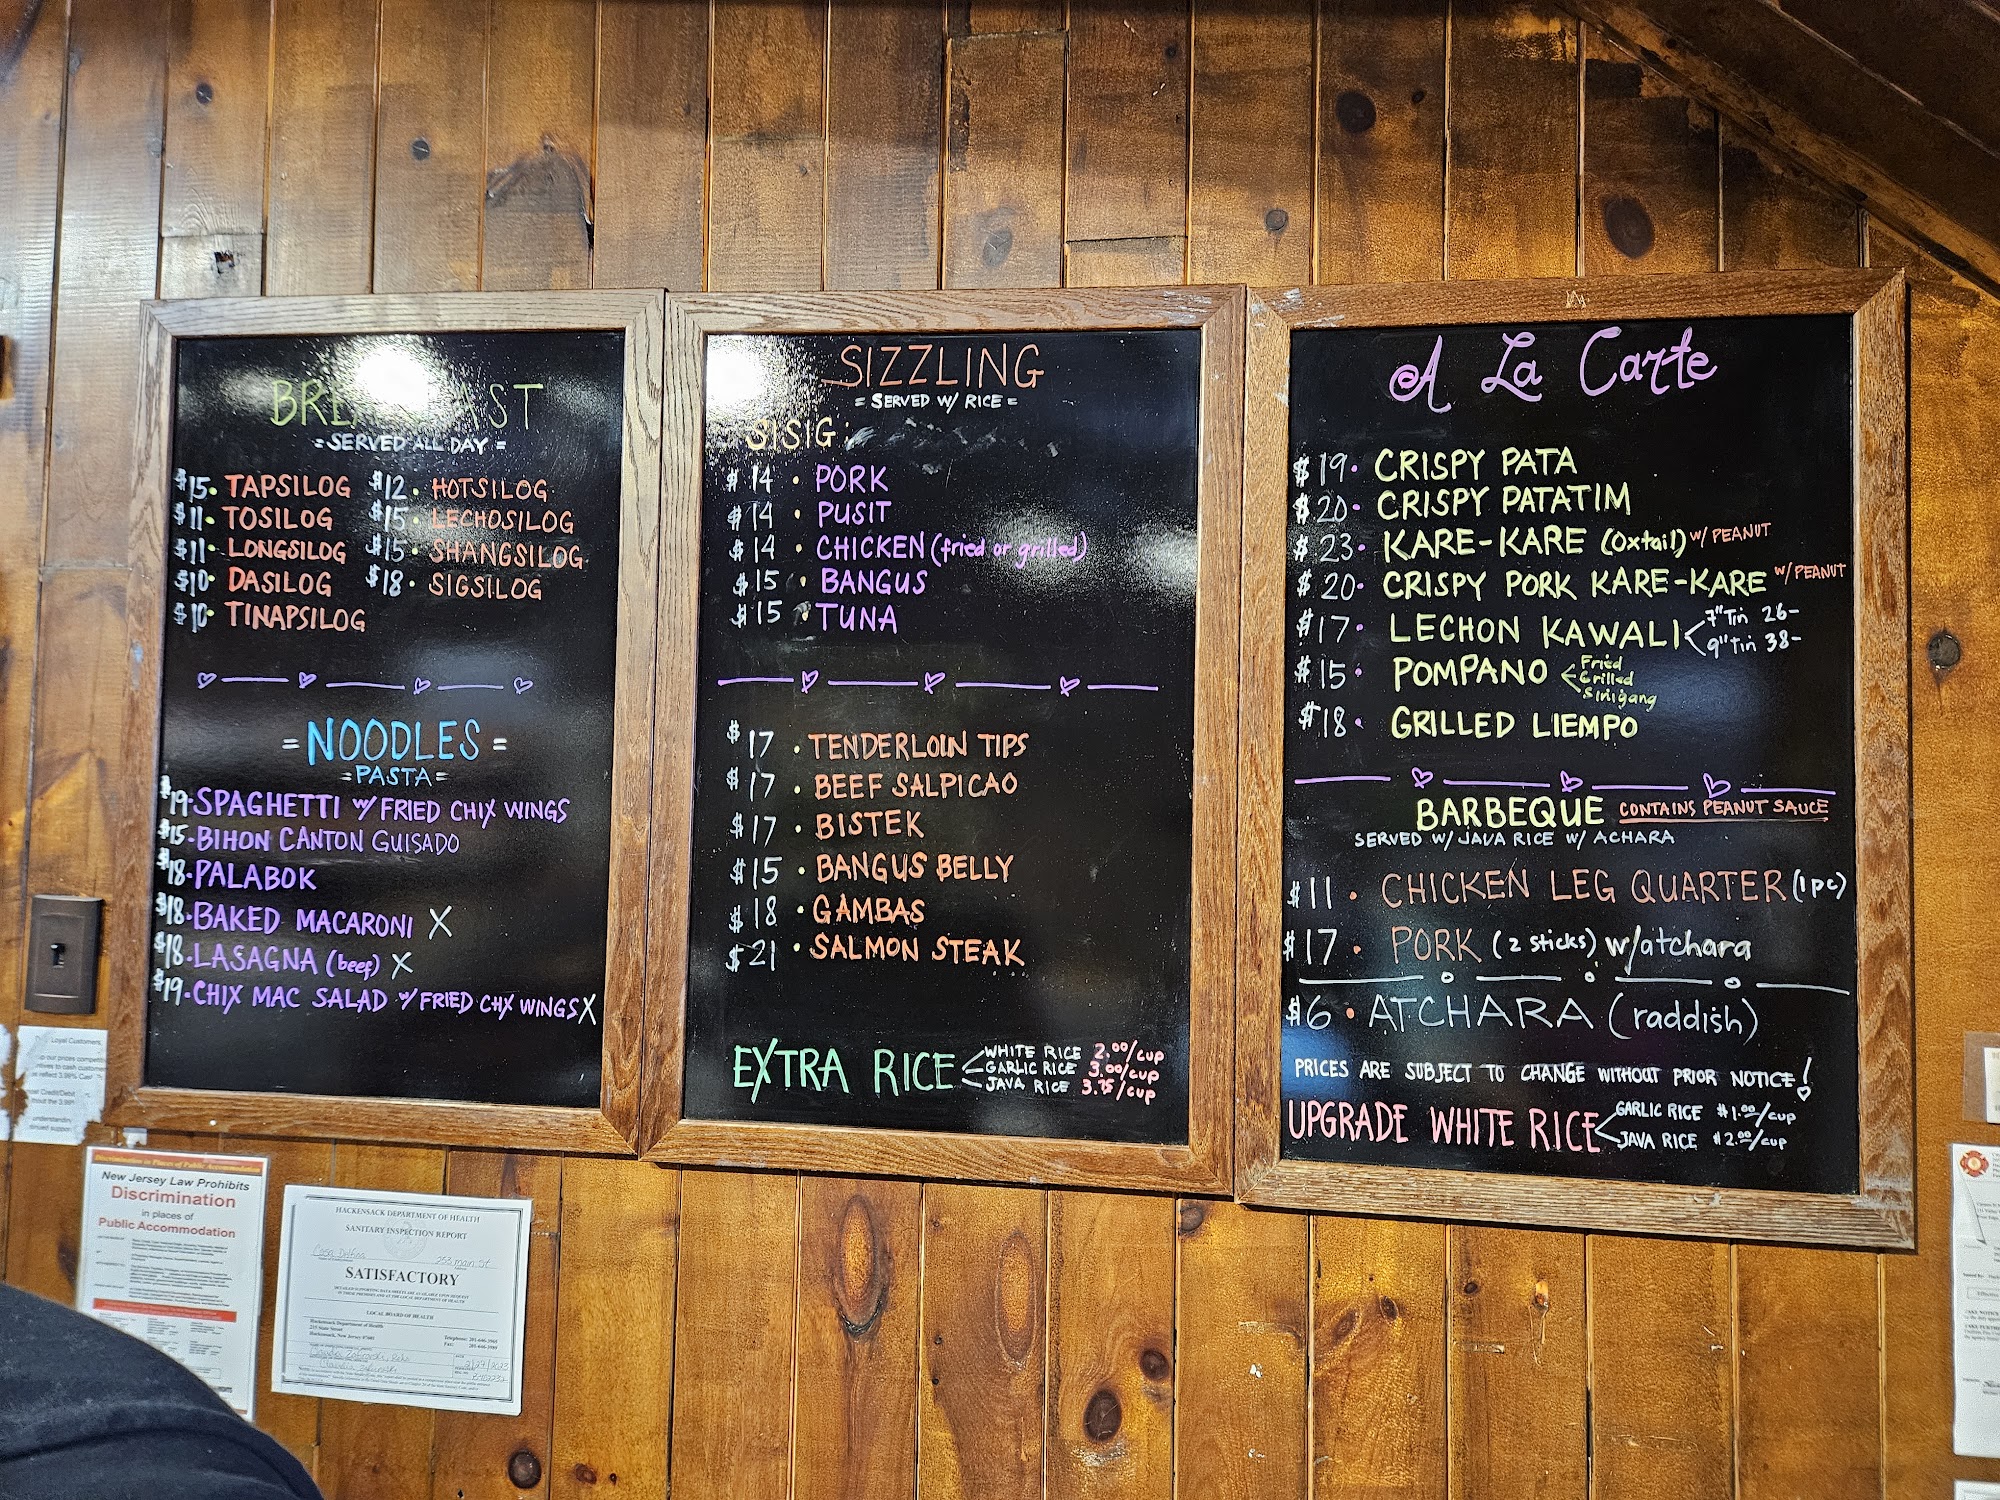 BREAKFAST
= SERVED ALL DAY =
$15 • TAPSILOG
$11 • TOSILOG
$11 • LONGSILOG
$10 • DASILOG
$10 • TINAPSILOG
$12 • HOTSILOG
$15 • LECHOSILOG
$15 • SHANGSILOG
$18 • SIGSILOG
= NOODLES =
= PASTA =
$19 • SPAGHETTI w/ FRIED CHIX WINGS
$15 • BIHON CANTON GUISADO
$18 • PALABOK
$18 • BAKED MACARONI X
$18 • LASAGNA (beef) X
$19 • CHIX MAC SALAD w/ FRIED CHX WINGS X
SIZZLING
= SERVED W/ RICE =
SISIG:
$14 • PORK
$14 • PUSIT
$14 • CHICKEN (fried or grilled)
$15 • BANGUS
$15 • TUNA
$17 • TENDERLOIN TIPS
$17 • BEEF SALPICAO
$17 • BISTEK
$15 • BANGUS BELLY
$18 • GAMBAS
$21 • SALMON STEAK
EXTRA RICE
WHITE RICE 2.00/cup
GARLIC RICE 3.00/cup
JAVA RICE 3.75/cup
A La Carte
$19 • CRISPY PATA
$20 • CRISPY PATATIM
$23 • KARE-KARE (Oxtail) w/ PEANUT
$20 • CRISPY PORK KARE-KARE w/ PEANUT
$17 • LECHON KAWALI
7" Tin 26-
9" Tin 38-
$15 • POMPANO
Fried
Grilled
Sinigang
$18 • GRILLED LIEMPO
BARBEQUE CONTAINS PEANUT SAUCE
SERVED W/ JAVA RICE W/ ACHARA
$11 • CHICKEN LEG QUARTER (1pc)
$17 • PORK (2 sticks) w/atchara
$6 • ATCHARA (raddish)
PRICES ARE SUBJECT TO CHANGE WITHOUT PRIOR NOTICE!
UPGRADE WHITE RICE
GARLIC RICE $1.00/cup
JAVA RICE $2.00/cup
Loyal Customers,
New Jersey Law Prohibits
Discrimination
in places of
Public Accommodation
HACKENSACK DEPARTMENT OF HEALTH
SANITARY INSPECTION REPORT
253 main St
SATISFACTORY
LOCAL BOARD OF HEALTH
Hackensack Department of Health
215 State Street
Hackensack, New Jersey 07601